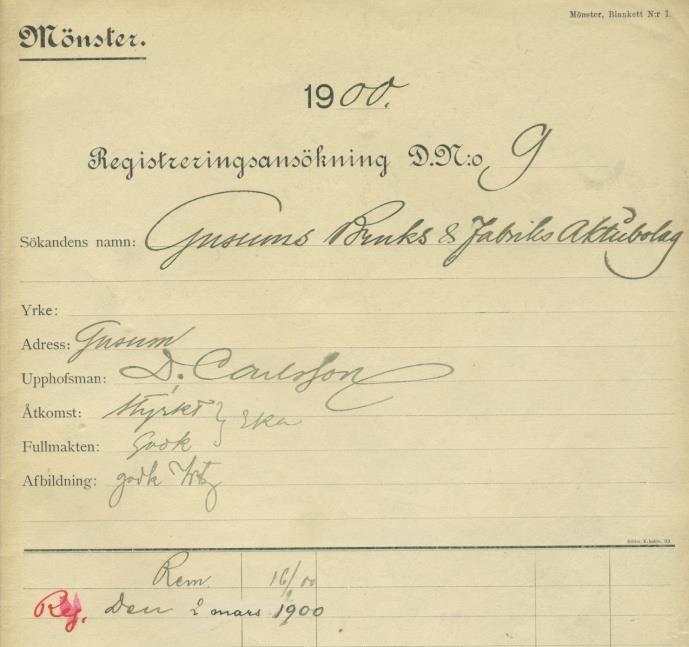 Mönster, Blankett N:r 1.
Mönster.
1900.
Registreringsansökning D.N:o 9
Sökandens namn: Gusums Bruks & Fabriks Aktiebolag
Yrke:
Adress: Gusum
Upphofsman: D. Carlsson
Åtkomst: Styrkt
Fullmakten: Godk
Afbildning: godk
Rem. 16/2 00
Reg. Den 2 mars 1900